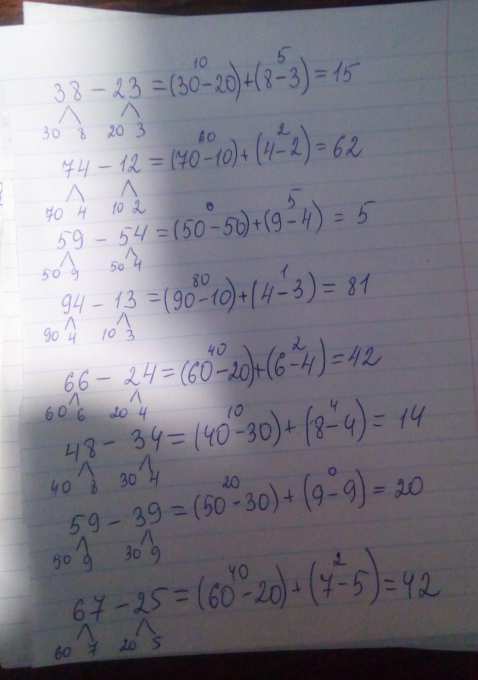 10 5
38 - 23 = (30-20)+(8-3) = 15
30 8 20 3
60 2
74 - 12 = (70-10)+(4-2) = 62
70 4 10 2
0 5
59 - 54 = (50-50)+(9-4) = 5
50 9 50 4
80 1
94 - 13 = (90-10)+(4-3) = 81
90 4 10 3
40 2
66 - 24 = (60-20)+(6-4) = 42
60 6 20 4
10 4
48 - 34 = (40-30)+(8-4) = 14
40 8 30 4
20 0
59 - 39 = (50-30)+(9-9) = 20
50 9 30 9
40 2
67 - 25 = (60-20)+(7-5) = 42
60 7 20 5